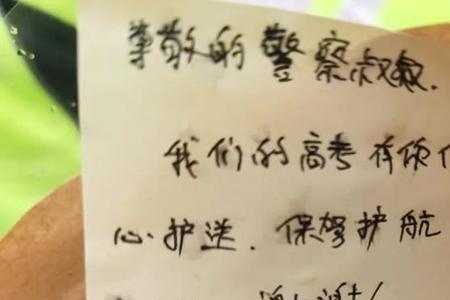 尊敬的警察叔叔.
我们的高考有你
心护送.保驾护航
谢谢